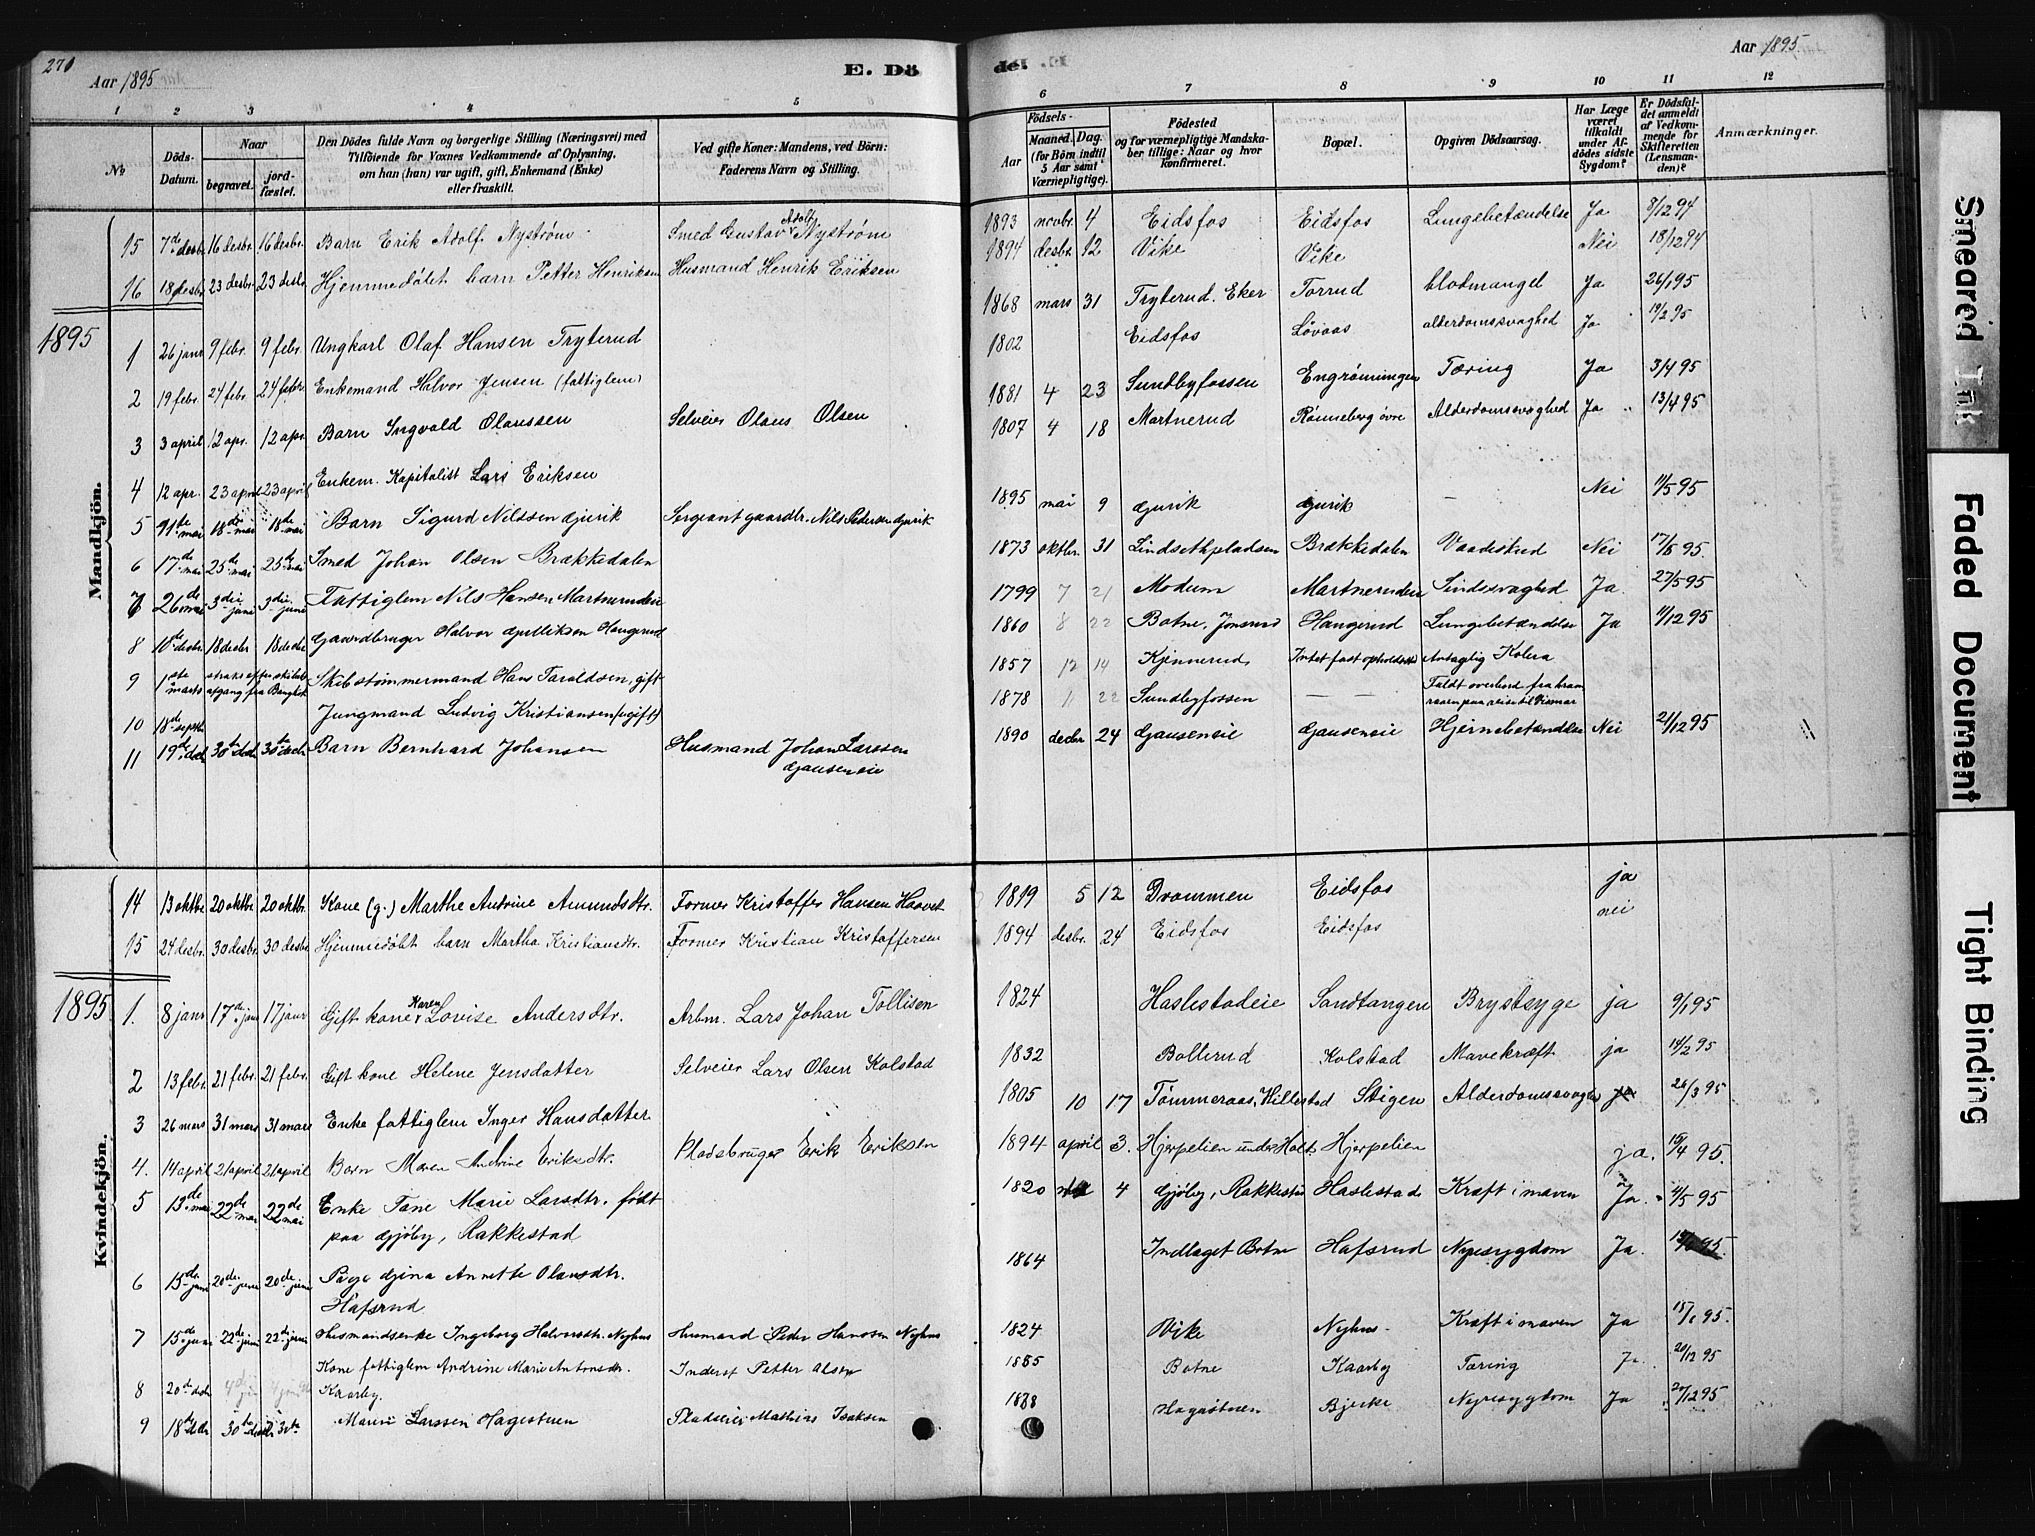 270
Aar 1895
E. Dö
de.
Aar 1895
1 2 3 4 5 6 7 8 9 10 11 12
No
Döds-Datum.
Naar
begravet.
jord-fæstet.
Den Dödes fulde Navn og borgerlige Stilling (Næringsvei) med
Tilföiende for Voxnes Vedkommende af Oplysning,
om han (hun) var ugift, gift, Enkemand (Enke)
eller fraskilt.
Ved gifte Koner: Mandens, ved Börn:
Faderens Navn og Stilling.
Födsels-
Aar
Maaned. Dag.
(for Börn indtil
5 Aar samt
Værnepligtige).
Födested
og for værnepligtige Mandska-
ber tillige: Naar og hvor
konfirmeret.
Bopæl.
Opgiven Dödsaarsag.
Har Læge
været
tilkaldt
under Af-
dödes sidste
Sygdom?
Er Dödsfal-
det anmeldt
af Vedkom-
mende for
Skifteretten
(Lensman-
den)?
Anmærkninger.
Mandkjön.
15 7de desbr. 16 desbr. 16 desbr. Barn Erik Adolf Nystrøm Smed Gustav Adolf Nystrøm 1893 novbr. 4 Eidsfos Eidsfos Lungebetændelse Ja 8/12 94
16 18 desbr 23 desbr. 23 desbr. Hjemmedøbt barn Petter Henriksen Husmand Henrik Eriksen 1894 desbr. 12 Vike Vike Nei 18/12 94
1895
1 26 janr 9 febr. 9 febr. Ungkarl Olaf Hansen Tryterud 1868 mars 31 Tryterud. Eker Torrud blodmangel Ja 26/1 95
2 19 febr. 24 febr. 24 febr. Enkemand Halvor Jensen (fattiglem) 1802 Eidsfos Løvaas alderdomssvaghed Ja 19/2 95
3 3 april 12 apr. 12 apr. Barn Ingvald Olaussen Selveier Olaus Olsen 1881 4 23 Sundbyfossen Engrønningen Tæring Ja 3/4 95
4 12 apr. 23 april 23 april Enkem. Kapitalist Lars Eriksen 1807 4 18 Martnerud Rønneberg øvre Alderdomssvaghed Ja 13/4 95
5 11te mai 18de mai 18de mai Barn Sigurd Nilssen Gjurik Sergeant gaardbr. Nils Pedersen Gjurik 1895 mai 9 Gjurik Gjurik — Nei 11/5 95
6 17de mai 25de mai 25de mai Smed Johan Olsen Brækkedalen 1873 oktbr. 31 Lindsethpladsen Brækkedalen Vaadeskud Nei 17/5 95.
7 26de mai 3die juni 3die juni Fattiglem Nils Hansen Martnerudeie 1799 7 21 Modum Martnerudeie Sindssvaghed Ja. 27/5 95
8 10de desbr 18 decbr 18 decbr Gaardbruger Halvor Gulliksen Haugerud 1860 8 22 Botne, Jonsrud Haugerud Lungebetændelse Ja 11/12 95
9 1ste marts straks efter skibets afgang fra Bangkok Skibstømmermand Hans Taraldsen, gift 1857 12 14 Kjennerud Intet fast opholdssted Antagelig Kolera
10 18de septbr Jungmand Ludvig Kristiansen (ugift) 1878 11 22 Sundbyfossen — — Faldt overbord fra kram raaen paa reise til Wismar
11 19de decbr 30te decbr 30te decbr Barn Bernhard Johansen Husmand Johan Larssen Gauseneie 1890 decbr 24 Gauseneie Gauseneie Hjernebetændelse Nei 21/12 95
Kvindekjön.
14 13 oktbr 20 oktbr. 20 oktbr. Kone (g.) Marthe Andrine Amundsdtr. Former Kristoffer Hansen Haavet 1819 5 12 Drammen Eidsfos ja
15 24 desbr. 30 desbr. 30 desbr. Hjemmedøbt barn Martha Kristiansdtr. Former Kristian Kristoffersen 1894 desbr. 24 Eidsfos Eidsfos nei
1895
1. 8 janr 17de janr 17 janr Gift kone Karen Lovise Andersdtr. Arbm. Lars Johan Tollisen 1824 Haslestadeie Sandtangen Brystsyge ja 9/1 95
2 13 febr. 21 febr. 21 febr. Gift kone Helene Jensdatter Selveier Lars Olsen Kolstad 1832 Bollerud Kolstad Mavekræft ja 14/2 95
3 26 mars 31 mars 31 mars Enke fattiglem Inger Hansdatter 1805 10 17 Tømmeraas, Hillestad Stigen Alderdomssvaghed ja 26/3 95
4. 14 april 21 april 21 april Barn Maren Andrine Eriksdtr. Pladsbruger Erik Eriksen 1894 april 3. Hjerpelien under Holt Hjerpelien ja. 15/4 95.
5 13de mai 22de mai 22de mai Enke Tane Marie Larsdtr. født paa Gjøby, Rakkestad 1820 4 Gjøby, Rakkestad Haslestad Kræft i maven Ja 14/5 95
6 15de juni 20de juni 20de juni Pige Gjina Annette Olausdtr. Hafsrud 1864 Indlaget Botne Hafsrud Nyresygdom Ja. 15/6 95.
7 15de juni 22de juni 22de juni Husmandsenke Ingeborg Halvorsdtr. Nyhus Husmand Peder Hanssen Nyhus 1824 Vike Nyhus Kræft i maven Ja 18/6 95.
8 20de decbr 4de jan 4 jan Kone fattiglem Andrine Marie Antonsdtr. Kaarby. Inderst Petter Olsen 1855 Botne Kaarby Tæring Ja. 20/12 95
9 18de decbr 30te decbr 30te Marie Larssen Hagestuen Pladseier Mathias Isaksen 1888 Hagastuen Bjerke Nyresygdom Ja 20/12 95
Smeared Ink
Faded Document
Tight Binding